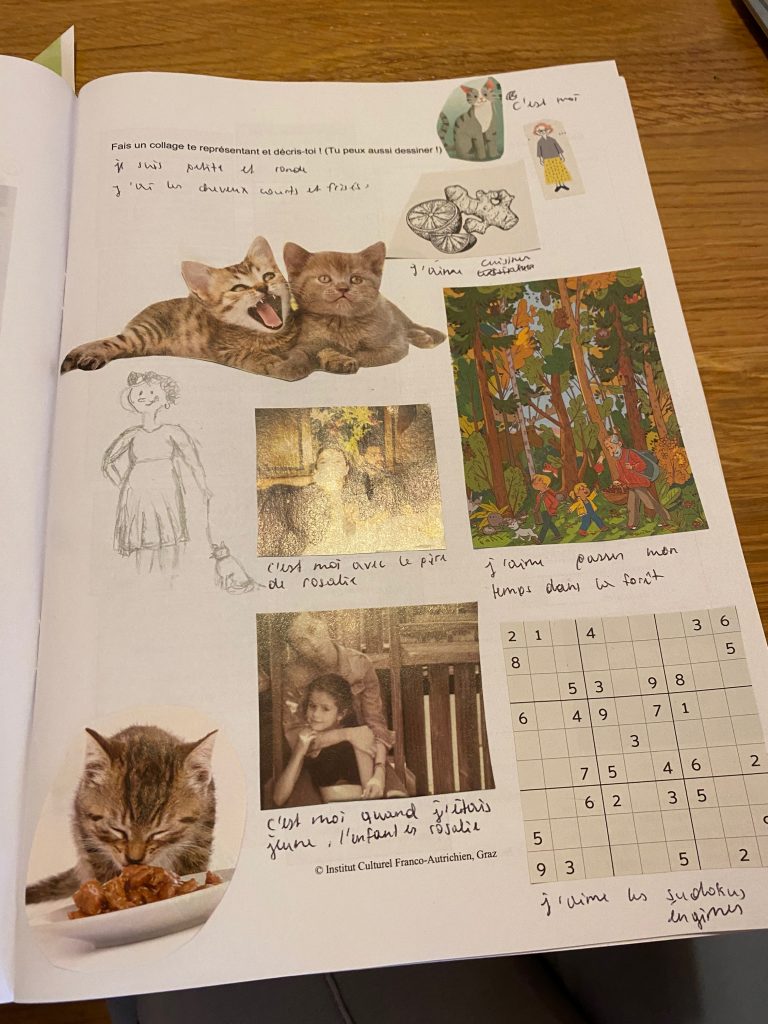 c'est moi
Fais un collage te représentant et décris-toi ! (Tu peux aussi dessiner !)
je suis petite et ronde
j'ai les cheveux courts et frisés.
j'aime cuisiner
c'est moi avec le père
de rosalie
j'aime passer mon
temps dans la forêt
2 1 4 3 6
8 5
5 3 9 8
6 4 9 7 1
3
7 5 4 6 2
6 2 3 5
5 9
9 3 5 2
c'est moi quand j'étais
jeune, l'enfant es rosalie
© Institut Culturel Franco-Autrichien, Graz
j'aime les sudokus